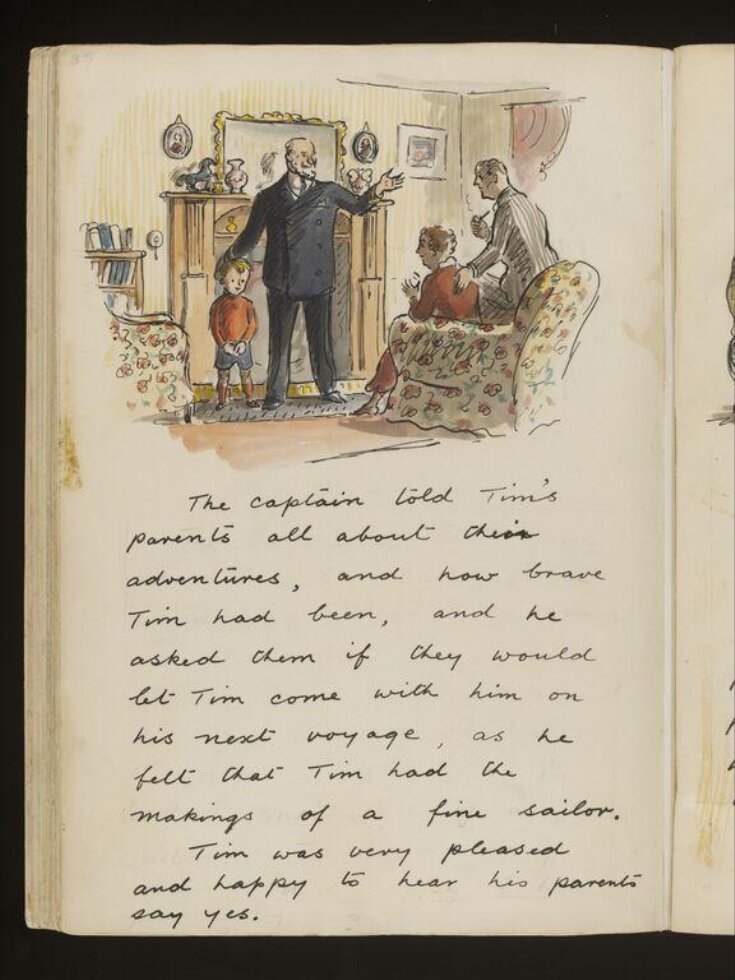 The captain told Tim's
parents all about their
adventures, and how brave
Tim had been, and he
asked them if they would
let Tim come with him on
his next voyage, as he
felt that Tim had the
makings of a fine sailor.
Tim was very pleased
and happy to hear his parents
say yes.